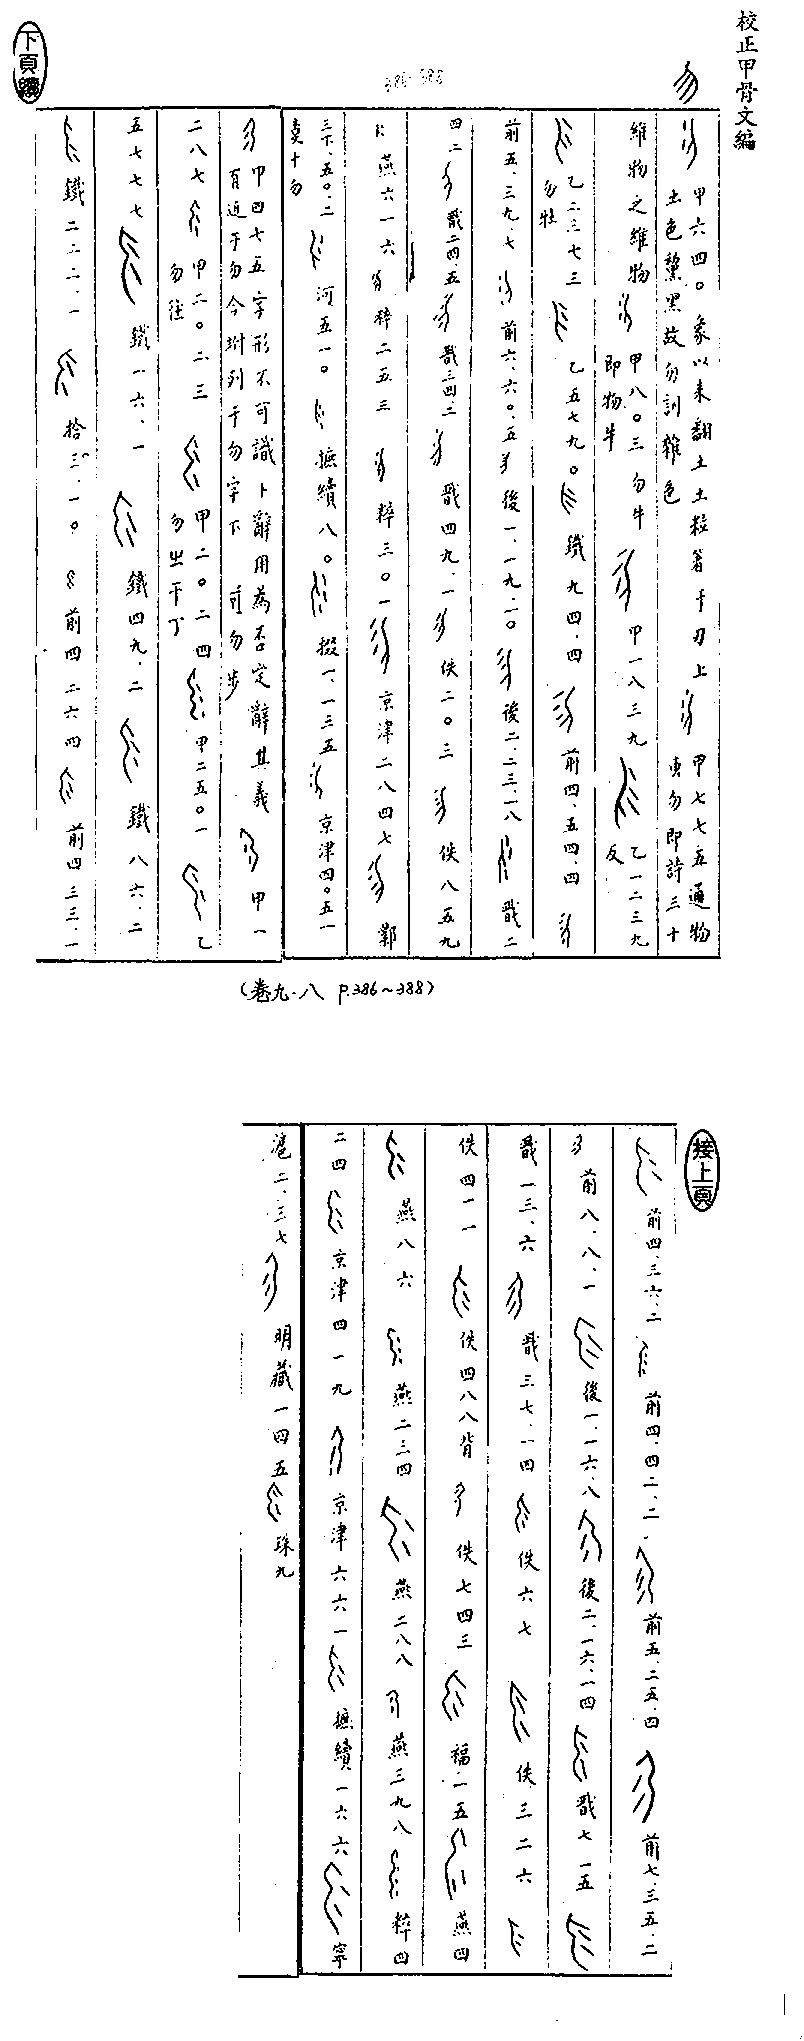 校正甲骨文編
勿
386-388
下頁續
甲六四〇 象以耒翻土土粒著于刃上 甲七七五 通物
土色黧黑故勿訓雜色 叀勿即詩三十
維物之維物 甲八〇三 勿牛 甲一八三九 乙一二三九
即物牛 反
乙二三七三 乙五七九〇 鐵九四.四 前四.五四.四
勿牡
前五.三九.七 前六.六〇.五 後一.一九.一〇 後二.二三.一八 戩二
四二 戩二四.五 戩三四.二 戩四九.一 佚二〇三 佚八五九
燕六一六 粹二五三 粹三〇一 京津二八四七 鄴
三下.五〇.二 河五一〇 摭續八〇 掇一.一三五 京津四〇五一
袁十勿
甲四七五 字形不可識卜辭用為否定辭其義 甲一
有近于勿今坿列于勿字下 勿步
二八七 甲二〇二三 甲二〇二四 甲二五〇一 乙
勿往 勿㞢于丁
五七七七 鐵一六.一 鐵四九.二 鐵八六.二
鐵二二二.一 拾三.一〇 前四二六四 前四三三.一
(卷九.八 P.386~388)
接上頁
前四.三六.二 前四.四二.二 前五.二五.四 前七.三五.二
前八.八.一 後一.一六.八 後二.一六.一四 戩七一五
戩一三.六 戩三七.一四 佚六七 佚三二六
佚四一一 佚四八八背 佚七四三 福二五 燕四
燕八六 燕二三四 燕二八八 燕三九八 粹四
二四 京津四一九 京津六六一 摭續一六六 寧
滬二.三七 明藏一四五 珠九